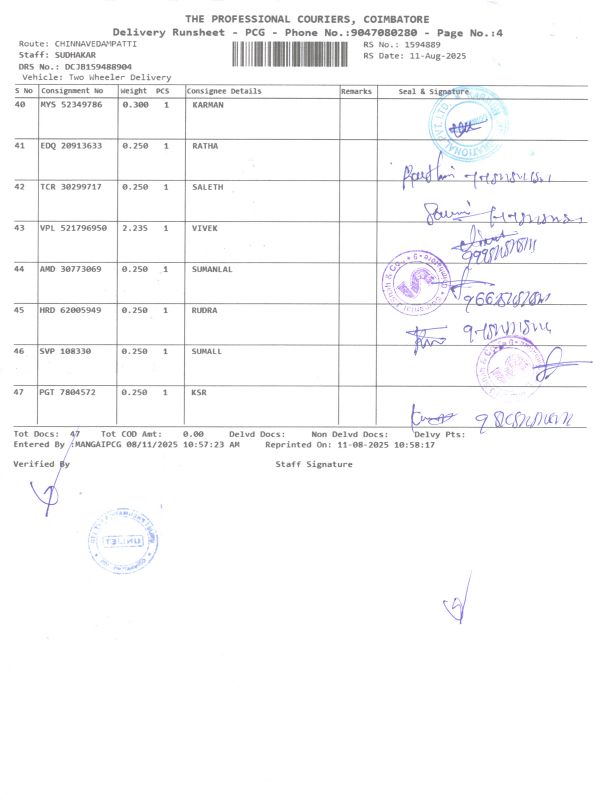 THE PROFESSIONAL COURIERS, COIMBATORE
Delivery Runsheet - PCG - Phone No.:9047080280 - Page No.:4
Route: CHINNAVEDAMPATTI RS No.: 1594889
Staff: SUDHAKAR RS Date: 11-Aug-2025
DRS No.: DCJB159488904
Vehicle: Two Wheeler Delivery
S No Consignment No Weight PCS Consignee Details Remarks Seal & Signature
40 MYS 52349786 0.300 1 KARMAN
41 EDQ 20913633 0.250 1 RATHA
42 TCR 30299717 0.250 1 SALETH
43 VPL 521796950 2.235 1 VIVEK
44 AMD 30773069 0.250 1 SUMANLAL
45 HRD 62005949 0.250 1 RUDRA
46 SVP 108330 0.250 1 SUMALL
47 PGT 7804572 0.250 1 KSR
Tot Docs: 47 Tot COD Amt: 0.00 Delvd Docs: Non Delvd Docs: Delvy Pts:
Entered By :MANGAIPCG 08/11/2025 10:57:23 AM Reprinted On: 11-08-2025 10:58:17
Verified By Staff Signature